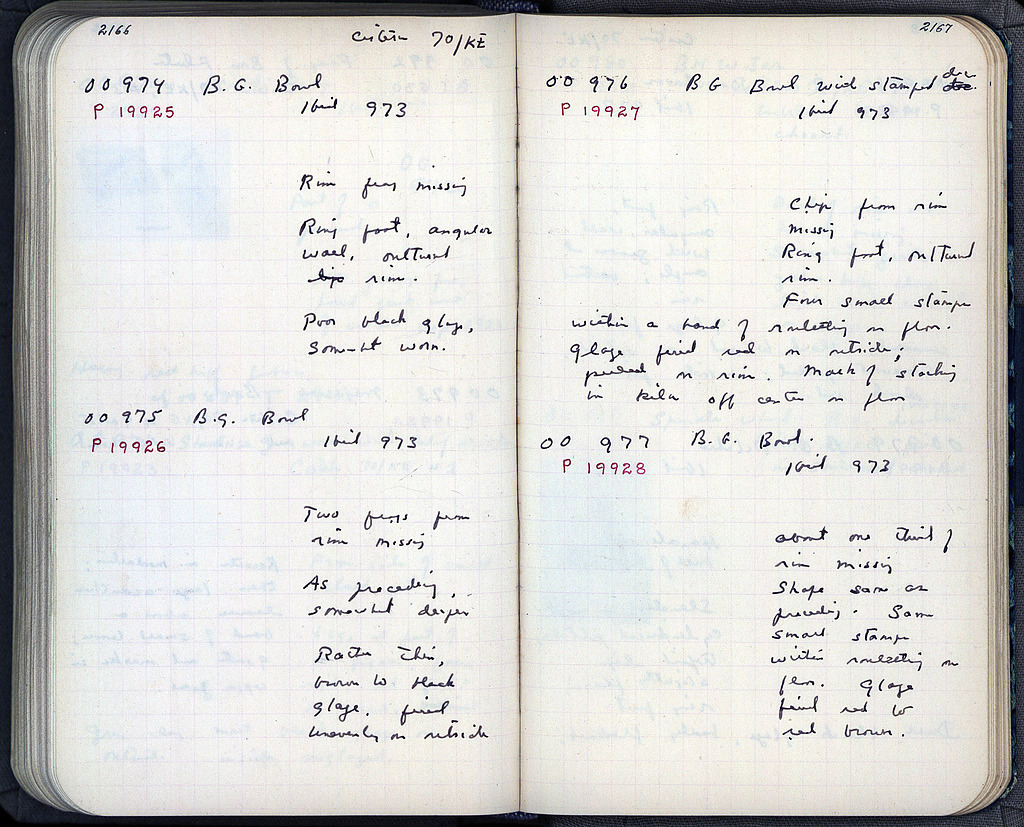 2166
Cistern 70/KE
OO 974 B.G. Bowl
P 19925 Ibid 973
Rim frag missing
Ring foot, angular
wall, outturned
rim.
Poor black glaze,
somewhat worn.
OO 975 B.G. Bowl
P 19926 Ibid 973
Two frags from
rim missing
As preceding,
somewhat deeper
Rather thin,
brown to black
glaze, fired
unevenly on outside
2167
OO 976 B G Bowl with stamped dec.
P 19927 Ibid 973
Chip from rim
missing
Ring foot, outturned
rim.
Four small stamps
within a band of rouletting on floor.
Glaze fired red on outside;
peeled on rim. Mark of stacking
in kiln off center on floor
OO 977 B.G. Bowl.
P 19928 Ibid 973
about one third of
rim missing
Shape same as
preceding. Same
small stamps
within rouletting on
floor. Glaze
fired red to
red brown.